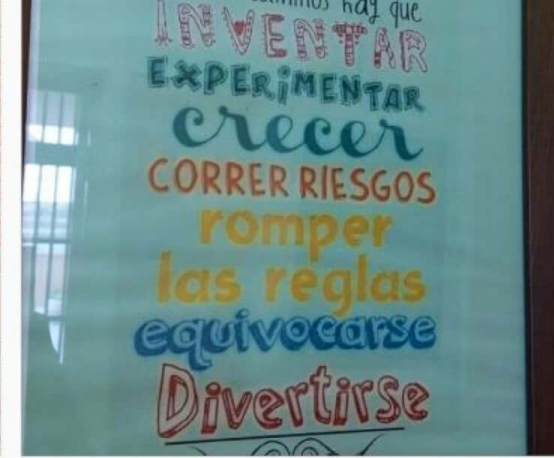 hay que
INVENTAR
EXPERiMENTAR
crecer
CORRER RIESGOS
romper
las reglas
equivocarse
Divertirse